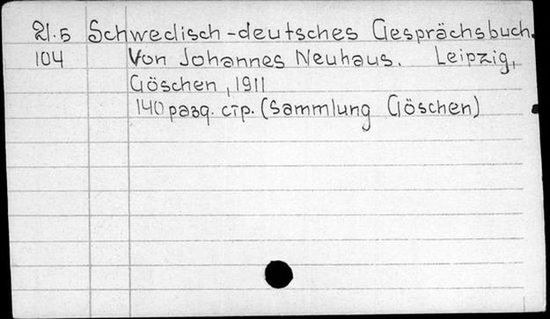 21.5 Schwedisch-deutsches Gesprächsbuch.
104 Von Johannes Neuhaus. Leipzig,
Göschen, 1911
140 разд. стр. (Sammlung Göschen)